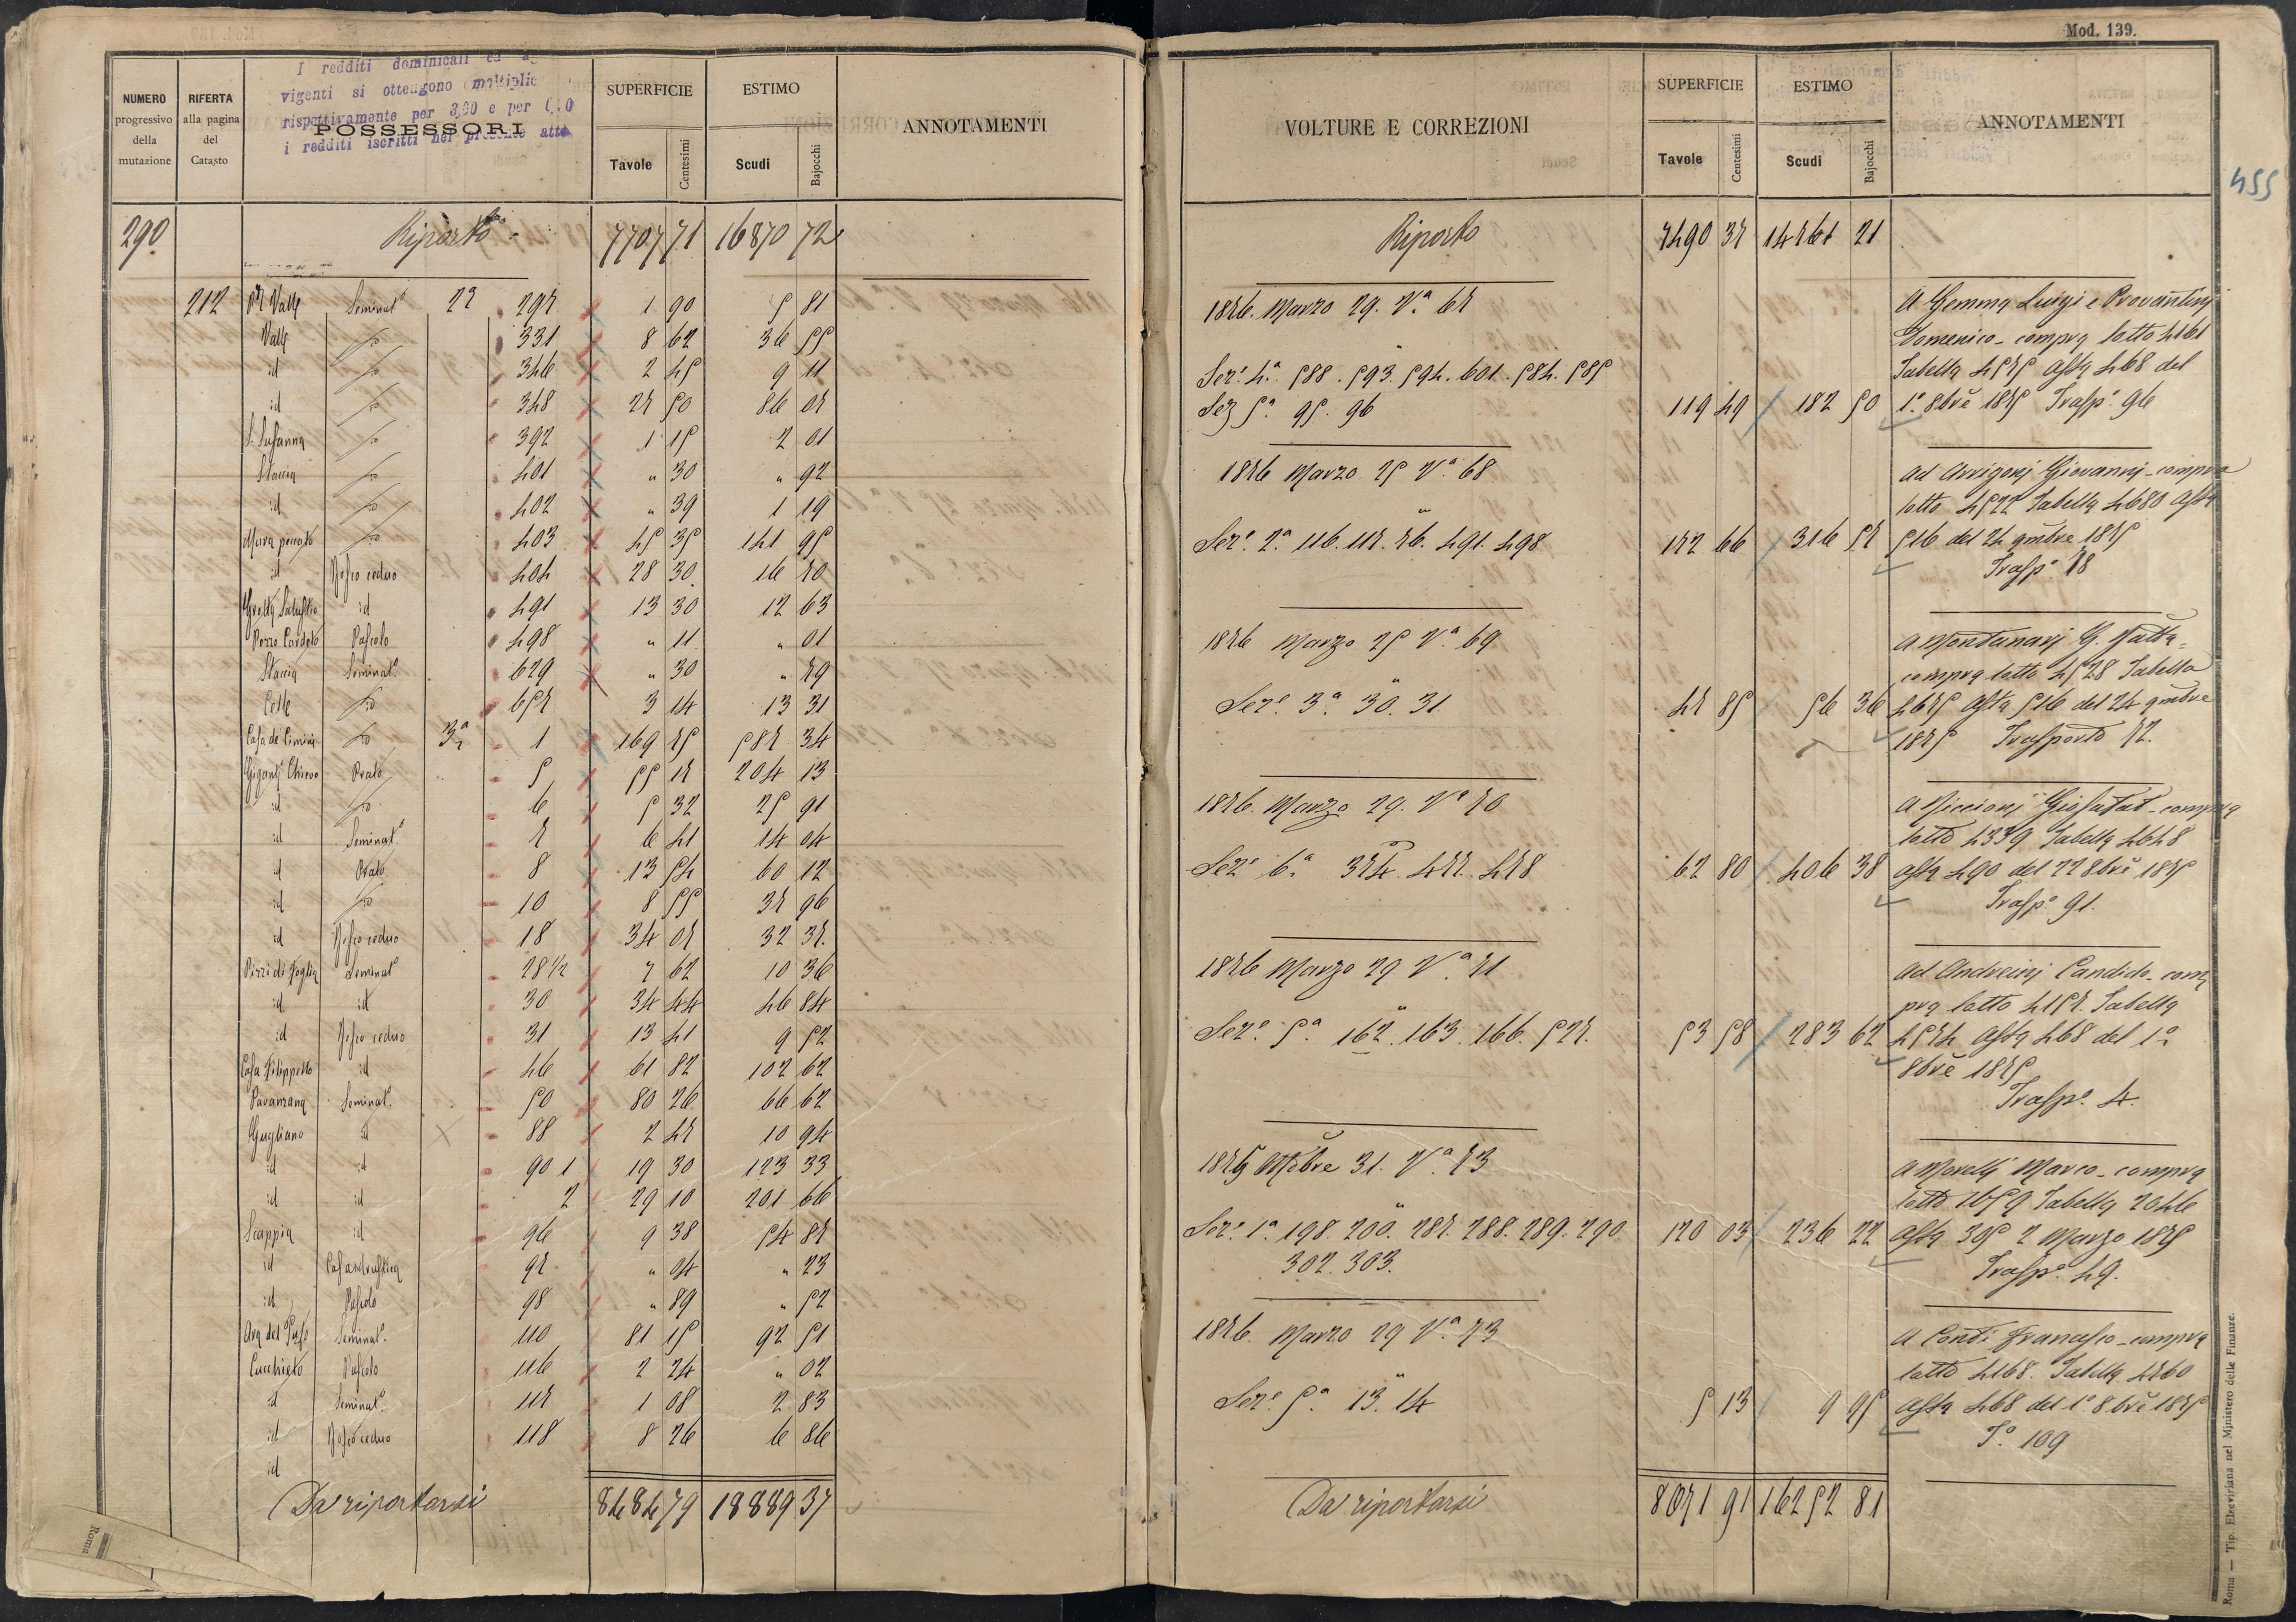 NUMERO progressivo della mutazione
RIFERTA alla pagina del Catasto
I redditi dominicali ed
vigenti si ottengono
rispettivamente per 3,60 e per
i redditi iscritti nel presente
POSSESSORI
SUPERFICIE
Tavole Centesimi
ESTIMO
Scudi Bajocchi
ANNOTAMENTI
290 Riporto 7707 71 16870 72
212 Valle Seminat.o 297 1 90 5 81
Valle 331 8 62 36 55
id 346 2 45 9 11
id 348 27 50 86 07
S. Susanna 392 1 15 2 01
Staccia 401 " 30 " 92
id 402 " 39 1 19
403 45 35 141 95
id Bosco ceduo 404 28 30 16 70
Grotta id 491 13 30 12 63
Pascolo 498 " 11 " 01
Staccia Seminat.o 629 " 30 " 79
Colle 657 3 14 13 31
3a 1 169 75 587 34
Prato 5 55 17 204 13
id 6 5 32 25 91
id Seminat.o 7 6 41 14 04
id Prato 8 13 54 60 12
id 10 8 55 37 96
id Bosco ceduo 18 34 07 32 37
Seminat.o 28 1/2 7 62 10 36
id id 30 34 44 46 84
id Bosco ceduo 31 13 41 9 52
Casa Filippetto id 46 61 82 102 62
Pavanzana Seminat.o 50 80 26 66 62
Gugliano id 88 2 47 10 94
id id 90 1 19 30 123 33
id id 2 29 10 201 66
Scappia id 96 9 38 54 87
id 97 " 04 " 23
id Pascolo 98 " 89 " 52
Seminat.o 110 81 15 92 51
Cucchieto Pascolo 116 2 24 " 02
id Seminat.o 117 1 08 2 83
id Bosco ceduo 118 8 26 6 86
id
Da riportarsi 8484 79 18889 37
Roma
Mod. 139.
455
VOLTURE E CORREZIONI
SUPERFICIE
Tavole Centesimi
ESTIMO
Scudi Bajocchi
ANNOTAMENTI
Riporto 7490 37 14761 21
1876. Marzo 29. V.a 67
A Gemma Luigi e Provantini
Domenico - compra lotto 4161
Sez.e 4.a 588. 593. 594. 601. 584. 585
Tabella 4575 Asta 468 del
Sez 5.a 95. 96 119 49 182 50
1.o 8bre 1875 Trasp.o 96
1876 Marzo 25 V.a 68
Ad Arrigoni Giovanni - compra
lotto 4522 Tabella 4680 Asta
Sez.e 2.a 116. 117. 76. 491. 498 172 66 316 57
516 del 24 9mbre 1875
Trasp.o 78
1876 Marzo 25 V.a 69
A Montanari G. Batta -
compra lotto 4528 Tabella
Sez.e 3.a 30. 31. 47 85 56 36
4675 Asta 516 del 24 9mbre
1875 Trasporto 72.
1876. Marzo 29. V.a 70
A Piccioni Giosafat - compra
lotto 4339 Tabella 4648
Sez.e 6.a 374. 477. 478 62 80 406 38
Asta 490 del 22 8bre 1875
Trasp.o 91.
1876 Marzo 29 V.a 71
Ad Andreini Candido - com
pra lotto 4157. Tabella
Sez.e 5.a 162. 163. 166. 527. 53 58 283 62
4574 Asta 468 del 1.o
8bre 1875
Trasp.o 4.
1875 Ottobre 31. V.a 73
A Morelli Marco - compra
lotto 1659 Tabella 2046
Sez.e 1.a 198. 200. 287. 288. 289. 290. 120 03 236 22
302. 303.
Asta 305 2 Marzo 1875
Trasp.o 49.
1876. Marzo 29 V.a 73
A Conti Francesco - compra
lotto 4168. Tabella 4760
Sez.e 5.a 13. 14 5 13 9 95
Asta 468 del 1.o 8bre 1875
T.o 109
Da riportarsi 8071 91 16252 81
Roma — Tip. Elzeviriana nel Ministero delle Finanze.